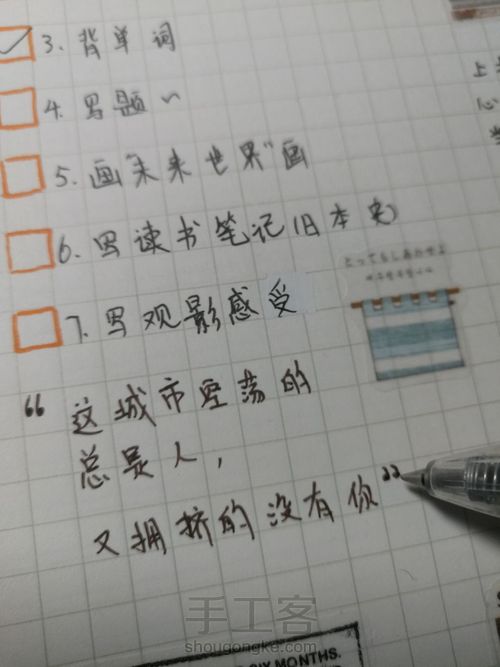 3. 背单词
4. 写题~
5. 画"未来世界"画
6. 写读书笔记(旧本史)
7. 写观影感受
“这城市空荡的
总是人，
又拥挤的没有你”
上
心
手工客
shougongke.com
SIX MONTHS.